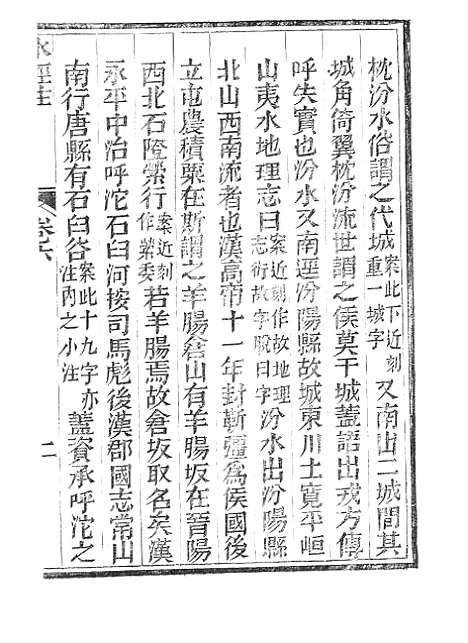 枕汾水俗謂之代城案此下近刻重一城字又南出二城間其
城角倚翼枕汾流世謂之侯莫干城蓋語出戎方傳
呼失實也汾水又南逕汾陽縣故城東川土寬平峘
山夷水地理志曰案近刻作故地理志術故字脫曰字汾水出汾陽縣
北山西南流者也漢高帝十一年封靳彊爲侯國後
立屯農積粟在斯謂之羊腸倉山有羊腸坂在晉陽
西北石隥縈行案近刻作縈委若羊腸焉故倉坂取名矣漢
永平中治呼沱石臼河按司馬彪後漢郡國志常山
南行唐縣有石臼谷案此十九字亦注內之小注蓋資承呼沱之
水經注
卷六
二